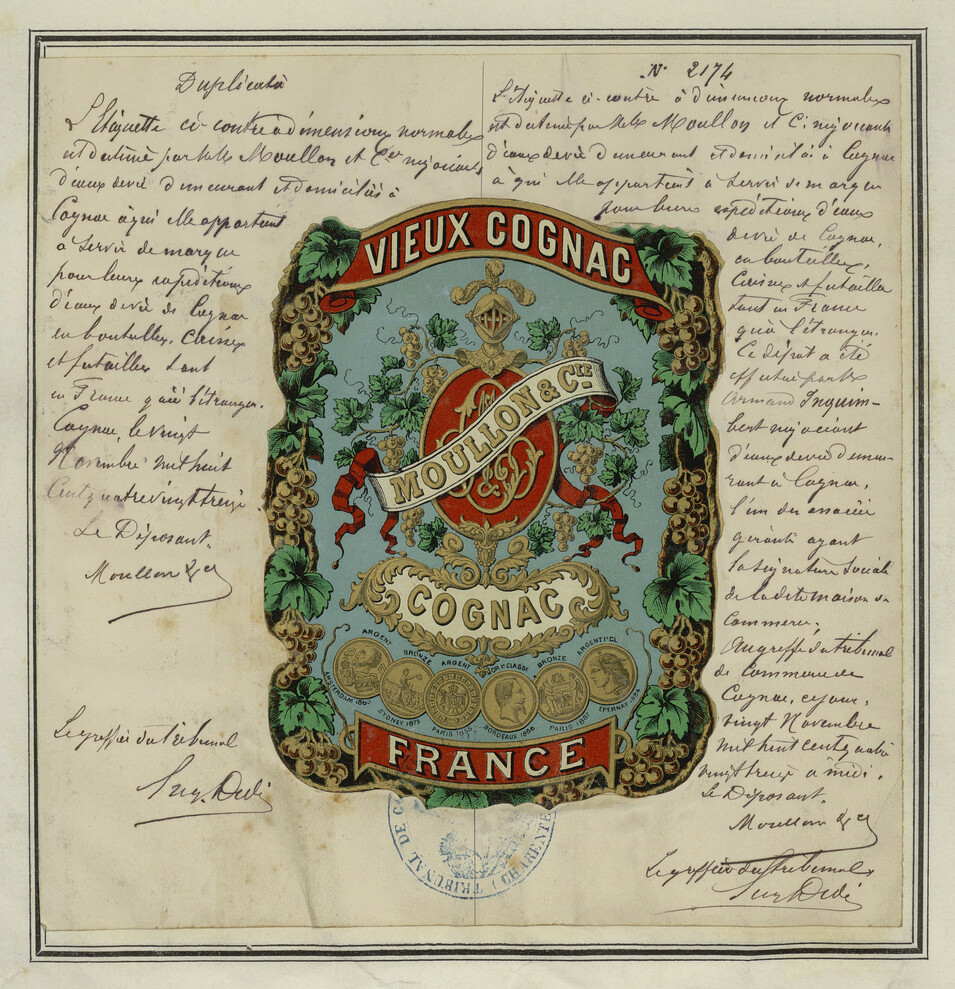 Duplicata
L'Etiquette ci-contre à dimensions normales
est destinée par Mrs Moullon et Cie négociants
d'eaux de vie demeurant et domiciliés à
Cognac à qui elle appartient
à servir de marque
pour leurs expéditions
d'eaux de vie de Cognac
en bouteilles, caisses
et futailles tant
en France qu'à l'étranger.
Cognac, le vingt
Novembre mil huit
cent quatre vingt treize.
Le Déposant.
Moullon & Cie
Le greffier du tribunal
N° 2174
L'étiquette ci-contre à dimensions normales
est destinée par Mrs Moullon et Cie négociants
d'eaux de vie demeurant et domiciliés à Cognac
à qui elle appartient à servir de marque
pour leurs expéditions d'eaux
de vie de Cognac,
en bouteilles,
caisses et futailles
tant en France
qu'à l'étranger.
Ce dépôt a été
effectué par Mr
Armand Inquim-
bert négociant
d'eaux de vie demeu-
rant à Cognac,
l'un des associés
gérants ayant
la signature sociale
de la dite maison de
commerce.
Au greffe du tribunal
de Commerce de
Cognac, ce jour,
vingt Novembre
mil huit cent quatre
vingt treize à midi.
Le Déposant.
Moullon & Cie
Le greffier du tribunal
VIEUX COGNAC
MOULLON & CIE
COGNAC
ARGENT BRONZE ARGENT OR 1re CLASSE BRONZE ARGENT 1e CL
AMSTERDAM SYDNEY 1879 PARIS 1855 BORDEAUX PARIS EPERNAY
FRANCE
TRIBUNAL DE C
CHARENTE